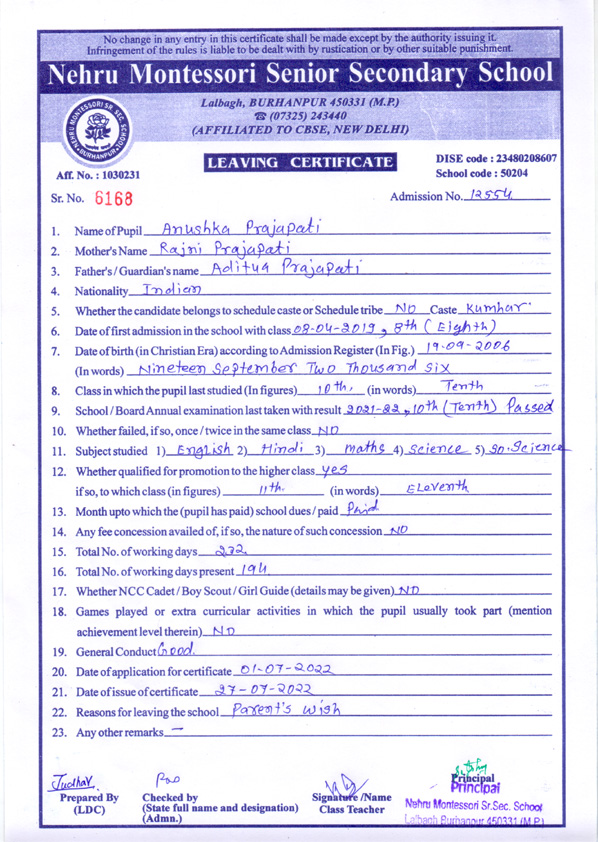 No change in any entry in this certificate shall be made except by the authority issuing it.
Infringement of the rules is liable to be dealt with by rustication or by other suitable punishment.
Nehru Montessori Senior Secondary School
Lalbagh, BURHANPUR 450331 (M.P.)
☎ (07325) 243440
(AFFILIATED TO CBSE, NEW DELHI)
NEHRU MONTESSORI SR. SEC. SCHOOL
BURHANPUR
LEAVING CERTIFICATE
DISE code : 23480208607
Aff. No. : 1030231 School code : 50204
Sr. No. 6168 Admission No. 12554
1. Name of Pupil Anushka Prajapati
2. Mother's Name Rajni Prajapati
3. Father's / Guardian's name Aditya Prajapati
4. Nationality Indian
5. Whether the candidate belongs to schedule caste or Schedule tribe NO Caste Kumhar
6. Date of first admission in the school with class 08-04-2019, 8th (Eighth)
7. Date of birth (in Christian Era) according to Admission Register (In Fig.) 19-09-2006
(In words) Nineteen September Two Thousand Six
8. Class in which the pupil last studied (In figures) 10th, (in words) Tenth
9. School / Board Annual examination last taken with result 2021-22, 10th (Tenth) Passed
10. Whether failed, if so, once / twice in the same class NO
11. Subject studied 1) English 2) Hindi 3) maths 4) Science 5) SO. Science
12. Whether qualified for promotion to the higher class yes
if so, to which class (in figures) 11th. (in words) Eleventh
13. Month upto which the (pupil has paid) school dues / paid Paid
14. Any fee concession availed of, if so, the nature of such concession NO
15. Total No. of working days 232
16. Total No. of working days present 194
17. Whether NCC Cadet / Boy Scout / Girl Guide (details may be given) NO
18. Games played or extra curricular activities in which the pupil usually took part (mention
achievement level therein) NO
19. General Conduct Good
20. Date of application for certificate 01-07-2022
21. Date of issue of certificate 27-07-2022
22. Reasons for leaving the school Parent's Wish
23. Any other remarks —
Prepared By
(LDC)
Checked by
(State full name and designation)
(Admn.)
Signature /Name
Class Teacher
Principal
Principal
Nehru Montessori Sr.Sec. School
Lalbagh Burhanpur 450331 (M.P.)